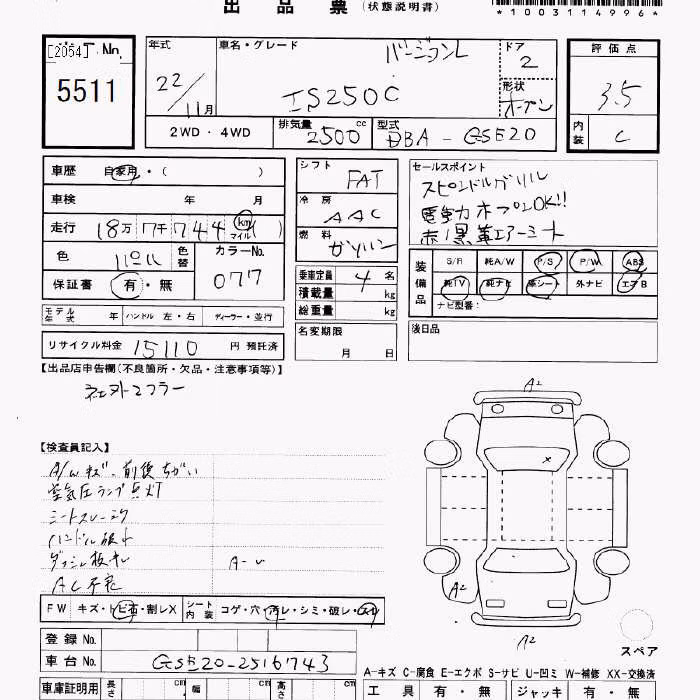 出品票(状態説明書)
*1003114996*
[2054] No.
5511
年式 22/11月
車名・グレード バージョンL
IS250C
ドア 2
形状 オープン
評価点 3.5
内装 C
2WD・4WD
排気量 2500 cc
型式 DBA-GSE20
車歴 自家用・( )
車検 年 月
走行 18万7千744 (km マイル)
色 パール 色替
カラーNo. 077
保証書 有・無
モデル年式 年 ハンドル 左・右 ディーラー・並行
リサイクル料金 15110 円 預託済
シフト FAT
冷房 AAC
燃料 ガソリン
乗車定員 4 名
積載量 kg
総重量 kg
名変期限
月 日
セールスポイント
スピンドルグリル
電動オープンOK!!
赤/黒革エアーシート
装備品 S/R 純A/W P/S P/W ABS
純TV 純ナビ 革シート 外ナビ エアB
ナビ型番:
後日品
【出品店申告欄(不良箇所・欠品・注意事項等)】
社外マフラー
【検査員記入】
A/Wキズ、前後ちがい
空気圧ランプ点灯
シートスレ
ハンドル
ダッシュ板キレ
AC不良
A-U
FW キズ・トビ石・割レX シート内装 コゲ・穴・汚レ・シミ・破レ・スレ
登録No.
車台No. GSE20-2516743
車庫証明用 長さ cm 幅 cm 高さ cm
A2
X
A2
A2
A2
スペア
A-キズ C-腐食 E-エクボ S-サビ U-凹ミ W-補修 XX-交換済
工具 有・無 ジャッキ 有・無